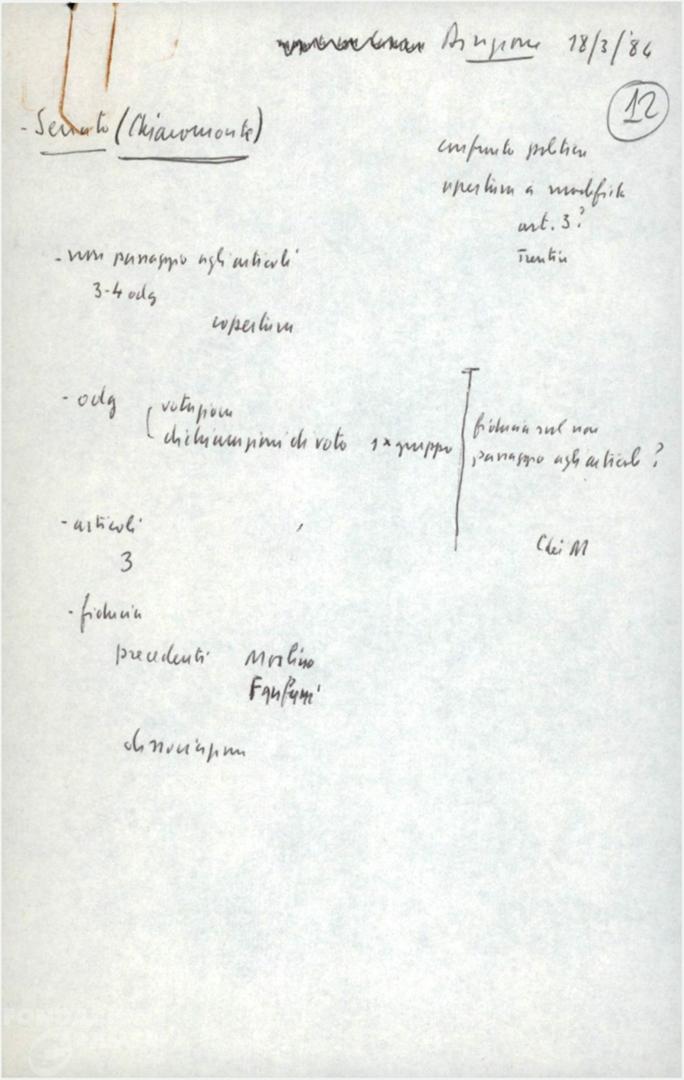 18/3/'84
12
- Senato (Chiaromonte)
confronto politico
apertura a modifich
art. 3?
Trentin
- non passaggio agli articoli
3-4 odg
copertura
- odg
votazione
dichiarazioni di voto 1 x gruppo
fiducia sul non
passaggio agli articoli?
- articoli
3
- fiducia
precedenti Morlino
Fanfani
dissociazione